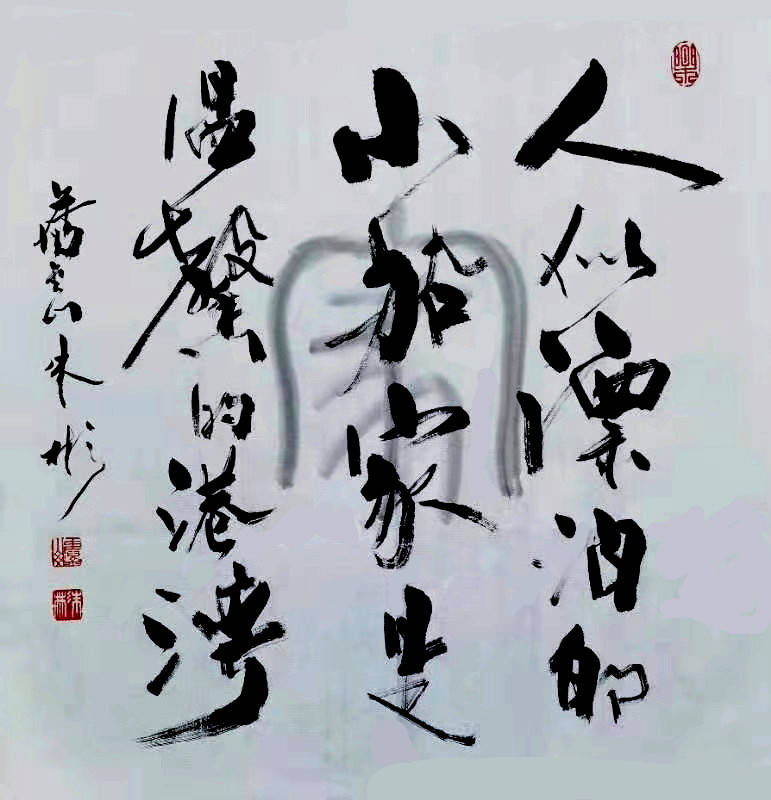 人似漂泊的
小船家是
温馨的港湾
云山朱彬
家